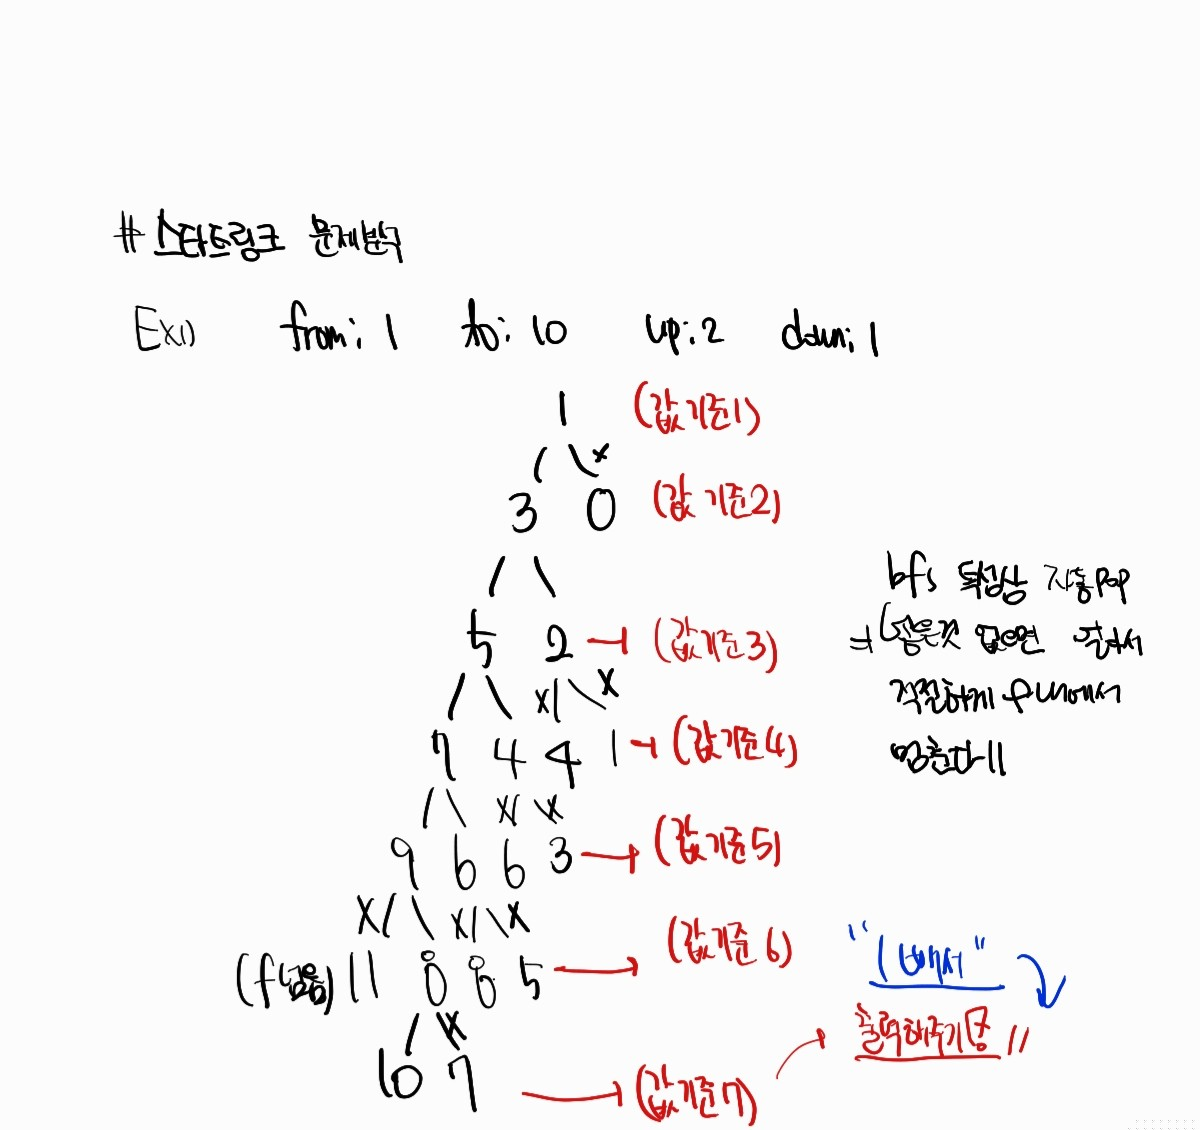 # 스타트링크 문제분석
Ex1) from: 1 to: 10 up: 2 down: 1
1 (값 기준1)
x
3 0 (값 기준2)
bfs 특성상 자동 pop
5 2 (값 기준3)
x x
적절하게 에서
7 4 4 1 (값 기준4)
멈춘다!!
x x
9 6 6 3 (값 기준5)
x x x
"1 빼서"
(f넘음) 11 8 8 5 (값 기준6)
출력해주기 //
x
10 7 (값 기준7)